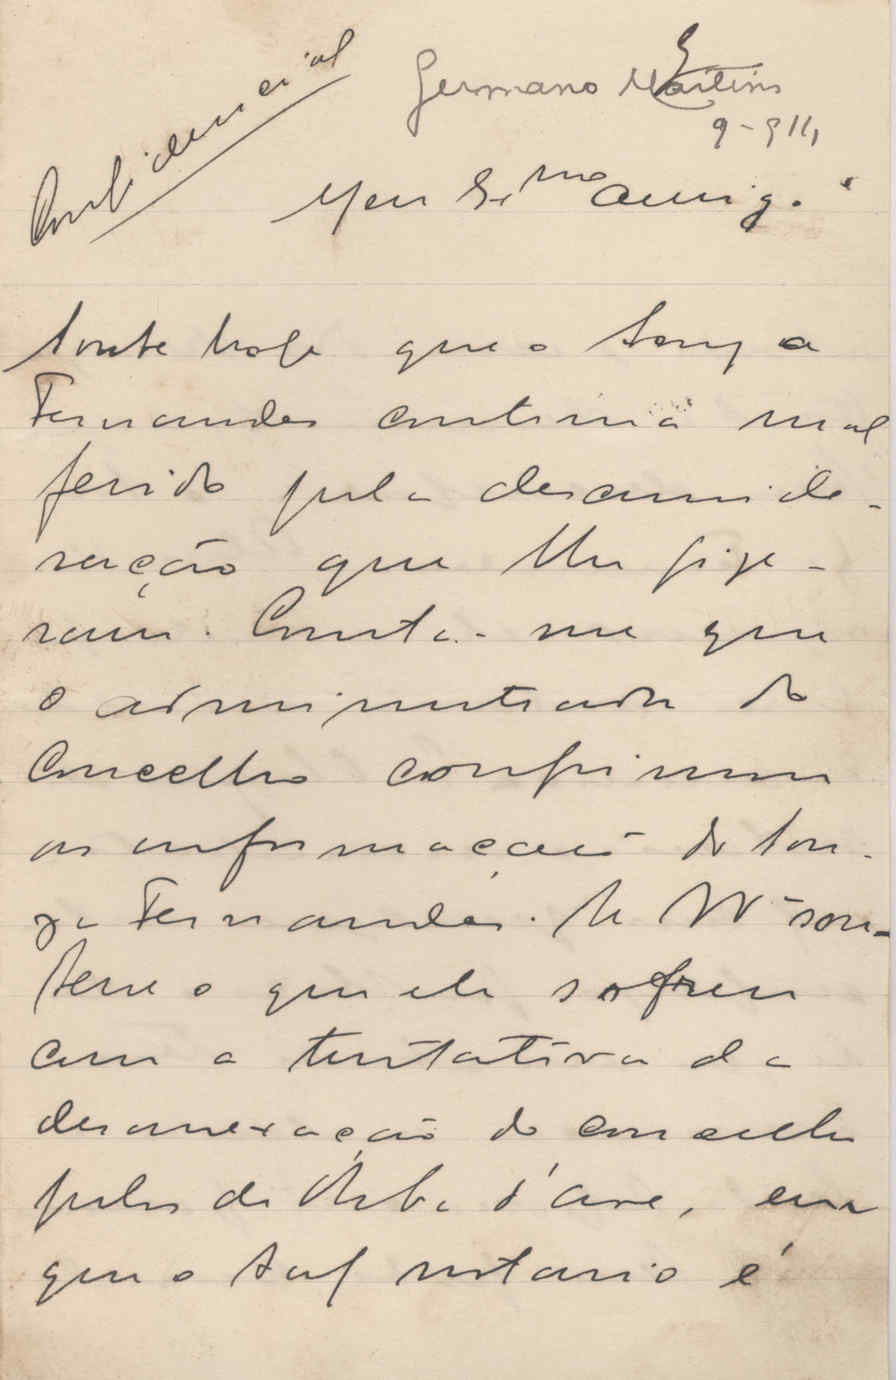 Confidencial
Germano Martins
9-911
Meu Exmo amigo
Soube hoje que o Souza
Fernandes continua mal
ferido pela desconside-
ração que lhe fize-
ram. Consta-me que
o administrador do
Concelho confirmou
as informações do Sou-
za Fernandes. V.
o que ele sofreu
com a tentativa da
desanexação do concelho
pelos de Riba d'Ave, em
que o tal notario é